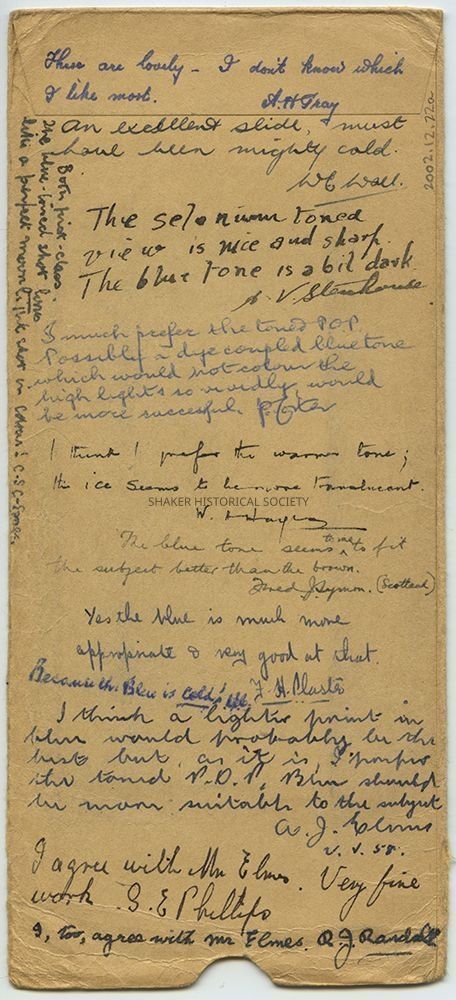 These are lovely - I don't know which
I like most.
A H Tray
2002.12.22a
An excellent slide, must
have been mighty cold.
W E Wall.
Both first-class.
The blue-toned shot looks
like a perfect moonlight shot in colour! C.S.C-
The selenium toned
view is nice and sharp.
The blue tone is a bit dark
V. Stenhouse
I much prefer the toned P.O.P.
Possibly a dye coupled blue tone
which would not colour the
high lights so vividly, would
be more succesful.
I think I prefer the warmer tone;
the ice seems to be more translucent.
SHAKER HISTORICAL SOCIETY
W.
The blue tone seems to me to fit
the subject better than the brown.
Fred J. Symon. (Scotland)
Yes the blue is much more
appropriate & very good at that.
Because the Blue is Cold!
F. H.
I think a lighter print in
blue would probably be the
best but, as it is, I prefer
the toned P.O.P. Blue should
be more suitable to the subject
A. J. Elms
V. V. 58.
I agree with Mr Elmes. Very fine
work. S. E Phillips
I, too, agree with Mr Elmes. R. J. Randall